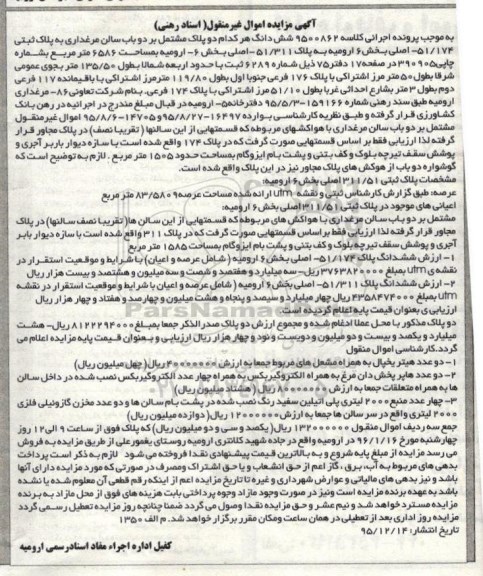 آگهی مزایده اموال غیرمنقول( اسناد رهنی)
به موجب پرونده اجرائی کلاسه ۹۵۰۰۸۶۲ شش دانگ هر کدام دو پلاک مشتمل بر دو باب سالن مرغداری به پلاک ثبتی
۵۱/۱۷۴- اصلی بخش ۶ ارومیه به پلاک ۵۱/۳۱۱- اصلی بخش ۶- ارومیه بمساحت ۶۵۸۶ متر مربع بشماره
چاپی ۳۹۰۹۰۵ در صفحه ۱۷ دفتر ۷۵ ذیل شماره ۶۲۸۹ ثبت با حدود اربعه شمالا بطول ۱۳۵/۵۰ متر بجوی عمومی
شرقا بطول ۵۰ متر مرز اشتراکی با پلاک ۱۷۶ فرعی جنوبا اول بطول ۱۱۹/۸۰ متر مرز اشتراکی با باقیمانده ۱۱۷ فرعی
دوم بطول ۳ متر بشارع احداثی غربا بطول ۵۱/۱۰ مرز اشتراکی با پلاک ۱۷۴ فرعی. بنام شرکت تعاونی ۸۶- مرغداری
ارومیه طبق سند رهنی شماره ۱۵۹۱۶۶-۹۵/۵/۳ دفترخانه ۵- ارومیه در قبال مبلغ مندرج در اجرائیه در رهن بانک
کشاورزی قرار گرفته و طبق نظریه کارشناسی بوارده ۱۶۴۹۷-۹۵/۸/۲۷ و ۱۴۷۰۵-۹۵/۸/۶ اموال غیرمنقول
مشتمل بر دو باب سالن مرغداری با هواکشهای مربوطه که قسمتهایی از این سالنها ( تقریبا نصف) در پلاک مجاور قرار
گرفته لذا ارزیابی فقط بر اساس قسمتهایی صورت گرفت که در پلاک ۱۷۴ واقع شده است با سازه دیوار باربر آجری و
پوشش سقف تیرچه بلوک و کف بتنی و پشت بام ایزوگام بمساحت حدود ۱۵۰۵ متر مربع . لازم به توضیح است که
گوشواره دو باب از هوکش های پلاک مجاور نیز در این پلاک واقع شده است.
مشخصات پلاک ثبتی ۳۱۱/۵۱ اصلی بخش ۶ ارومیه:
عرصه: طبق گزارش کارشناس ثبتی و نقشه utm ارائه شده مساحت عرصه ۸۳/۵۸۰۹ متر مربع
اعیانی های موجود در پلاک ثبتی ۳۱۱/۵۱ اصلی بخش ۶ ارومیه:
مشتمل بر دو باب سالن مرغداری با هواکش های مربوطه که قسمتهایی از این سالن ها( تقریبا نصف سالنها) در پلاک
مجاور قرار گرفته لذا ارزیابی فقط بر اساس قسمتهایی صورت گرفت که در پلاک ۳۱۱ واقع شده است با سازه دیوار باربر
آجری و پوشش سقف تیرچه بلوک و کف بتنی و پشت بام ایزوگام بمساحت ۱۵۸۵ متر مربع
۱- ارزش ششدانگ پلاک ۵۱/۱۷۴- اصلی بخش ۶ ارومیه ( شامل عرصه و اعیان) با شرایط و موقعیت استقرار در
نقشه ی utm بمبلغ ۳۷۶۳۸۲۰۰۰۰ ریال- سه میلیارد و هفتصد و شصت و سه میلیون و هشتصد و بیست هزار ریال
۲- ارزش ششدانگ پلاک ۵۱/۳۱۱- اصلی بخش ۶ ارومیه ( شامل عرصه و اعیان با شرایط و موقعیت استقرار در نقشه
utm بمبلغ ۴۳۵۸۴۷۴۰۰۰ ریال چهار میلیارد و سیصد و پنجاه و هشت میلیون و چهارصد و هفتاد و چهار هزار ریال
ارزیابی بعنوان قیمت پایه اعلام گردیده است
دو پلاک مذکور با محل عملا ادغام شده و مجموع ارزش دو پلاک صدرالذکر جمعا بمبلغ ۸۱۲۲۲۹۴۰۰۰ ریال- هشت
میلیارد و یکصد و بیست و دو میلیون و دویست و نود و چهار هزار ریال ارزیابی و بعنوان قیمت پایه مزایده اعلام می
گردد. کارشناسی اموال منقول
۱- دو عدد هیتر یخیال به همراه مشعل های مربوط جمعا به ارزش ۴۰۰۰۰۰۰۰ ریال( چهل میلیون)
۲- دو عدد هاپر پخش دان مرغ به همراه الکتروگیربکس به همراه چهار عدد الکتروگیربکس نصب شده در داخل سالن
ها به همراه متعلقات جمعا به ارزش ۸۰۰۰۰۰۰۰ ریال( هشتاد میلیون ریال)
۳- چهار عدد منبع ۲۰۰۰ لیتری پلی اتیلین سفید رنگ نصب شده در پشت بام سالن ها و دو عدد مخزن گازوئیلی فلزی
۲۰۰۰ لیتری واقع در سر سالن ها جمعا به ارزش ۱۲۰۰۰۰۰۰ ریال( دوازده میلیون ریال)
جمع سه ردیف اموال منقول ۱۳۲۰۰۰۰۰۰ ریال( یکصد و سی و دو میلیون ریال) که پلاک فوق از ساعت ۹ الی ۱۲ روز
چهارشنبه مورخ ۹۶/۱/۱۶ در ارومیه واقع در جاده شهید کلانتری ارومیه روستای یغمورعلی از طریق مزایده به فروش
می رسد مزایده از مبلغ پایه شروع و به بالاترین قیمت پیشنهادی نقدا فروخته می شود . لازم به ذکر است پرداخت
بدهی های مربوط به آب، برق، گاز اعم از حق انشعاب و یا حق اشتراک و مصرف در صورتی که مورد مزایده دارای آنها
باشد و نیز بدهی های مالیاتی و عوارض شهرداری و غیره تا تاریخ مزایده اعم از اینکه رقم قطعی آن معلوم شده یا نشده
باشد به عهده برنده مزایده است ونیز در صورت وجود مازاد وجوه پرداختی بابت هزینه های فوق از محل مازاد به برنده
مزایده مسترد خواهد شد و نیم عشر و حق مزایده نقدا وصول می گردد ضمنا چنانچه روز مزایده تعطیل رسمی گردد
مزایده روز اداری بعد از تعطیلی در همان ساعت ومکان مقرر برگزار خواهد شد. م الف ۱۳۵۰
تاریخ انتشار: ۹۵/۱۲/۱۴
کفیل اداره اجراء مفاد اسنادرسمی ارومیه